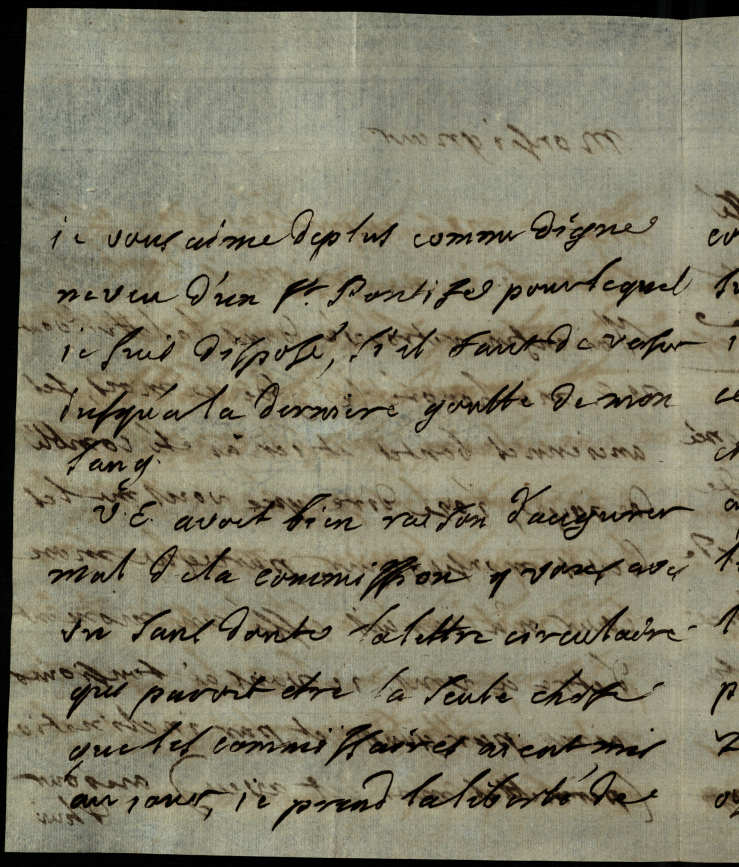 ie vous aime deplus comme digne
neveu d'un st. Pontife pour lequel
ie suis disposé, s'il faut de verser
iusqu'a la derniere goutte de mon
sang.
V.E. avoit bien raison d'augurer
mal de la commission q vous avés
su sans doute la lettre circulaire
qui paroit etre la seule chose
que les commissaires aient mis
au iour, ie prend la liberté de